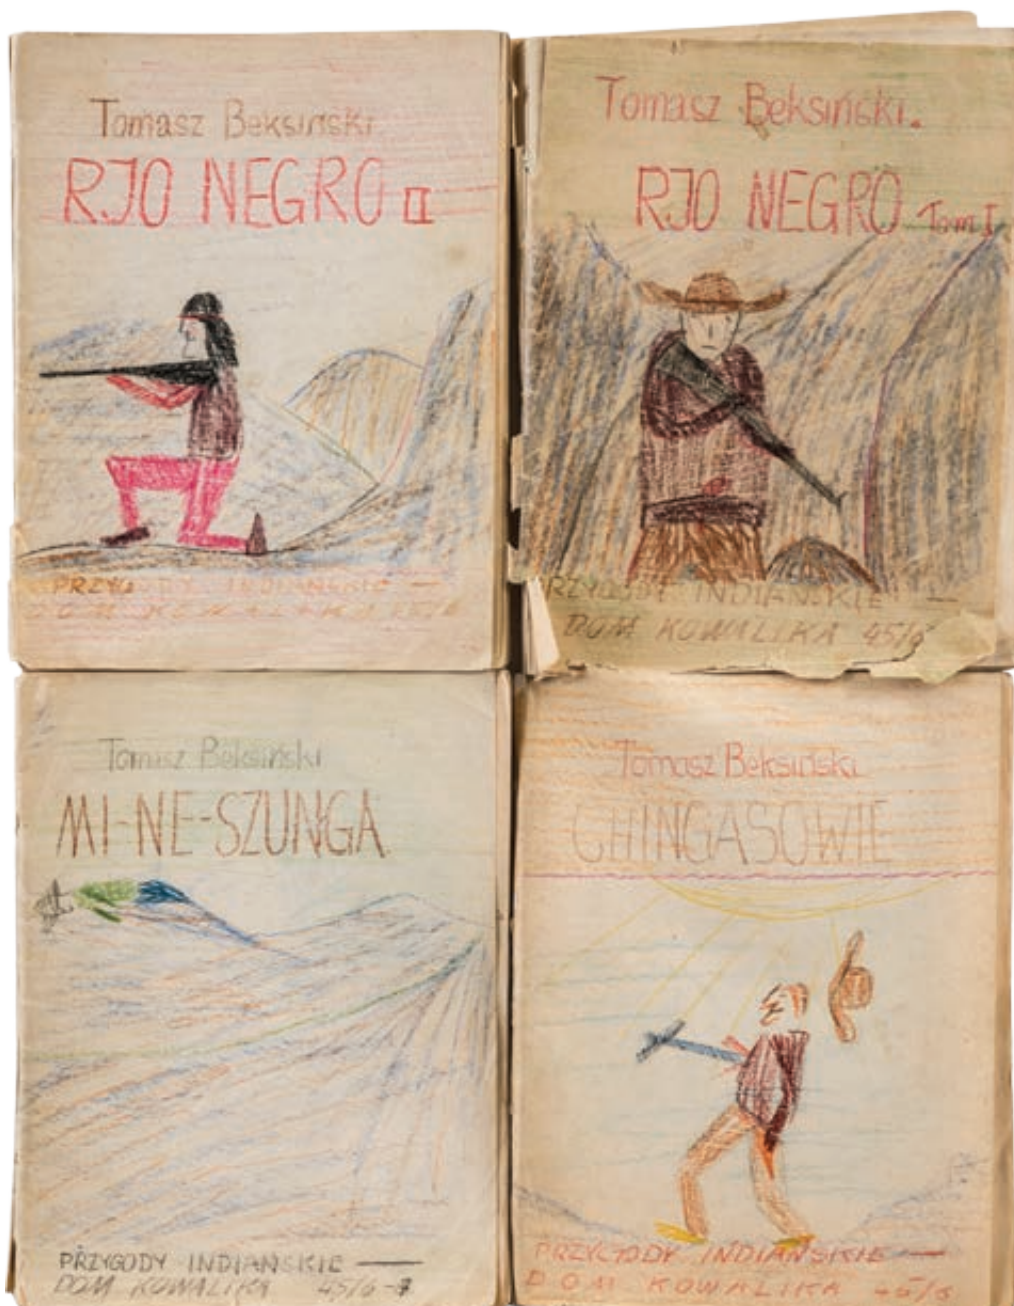 Tomasz Beksiński
RJO NEGRO II
PRZYGODY INDIAŃSKIE —
DOM KOWALIKA 45/6
Tomasz Beksiński.
RJO NEGRO Tom I
PRZYGODY INDIAŃSKIE —
DOM KOWALIKA 45/6
Tomasz Beksiński
MI-NE-SZUNGA
PRZYGODY INDIAŃSKIE —
DOM KOWALIKA 45/6-7
Tomasz Beksiński
CHINGASOWIE
PRZYGODY INDIAŃSKIE —
DOM KOWALIKA 45/6